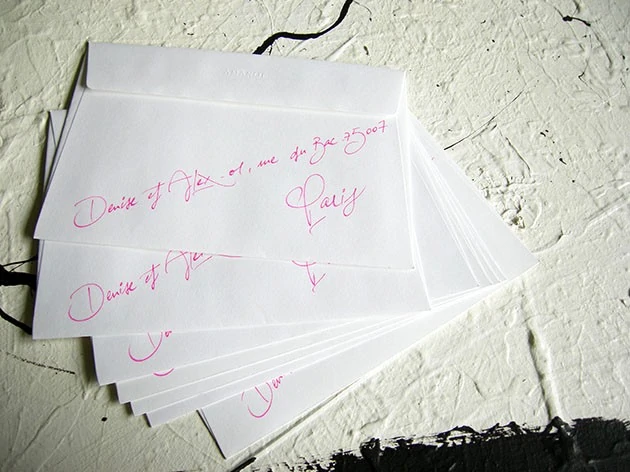 Denise et Alex 01, rue du Bac 75007
Paris
Denise et Alex